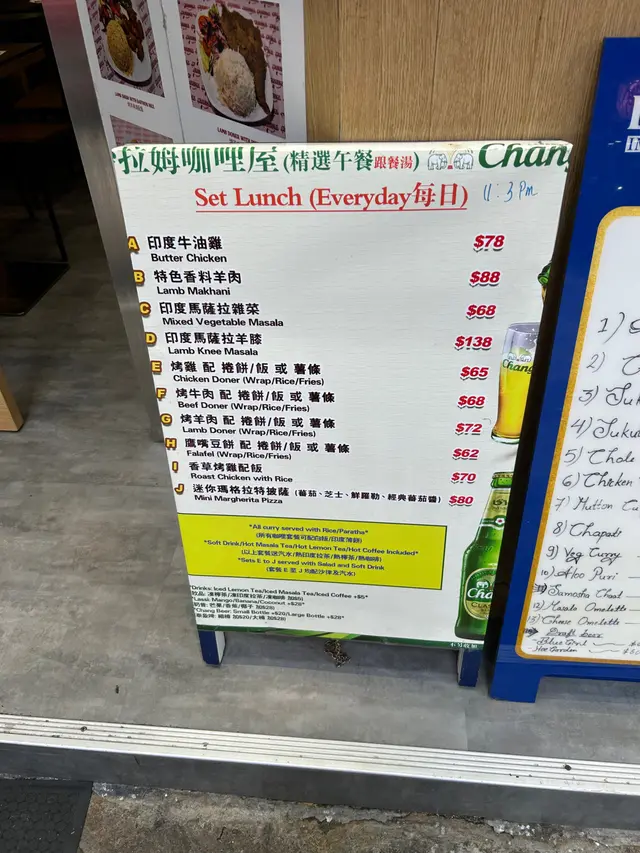 拉姆咖喱屋 (精選午餐跟餐湯) Chang
Set Lunch (Everyday每日) 11:3 Pm
A 印度牛油雞 $78
Butter Chicken
B 特色香料羊肉 $88
Lamb Makhani
C 印度馬薩拉雜菜 $68
Mixed Vegetable Masala
D 印度馬薩拉羊膝 $138
Lamb Knee Masala
E 烤雞 配 捲餅/飯 或 薯條 $65
Chicken Doner (Wrap/Rice/Fries)
F 烤牛肉 配 捲餅/飯 或 薯條 $68
Beef Doner (Wrap/Rice/Fries)
G 烤羊肉 配 捲餅/飯 或 薯條 $72
Lamb Doner (Wrap/Rice/Fries)
H 鷹嘴豆餅 配 捲餅/飯 或 薯條 $62
Falafel (Wrap/Rice/Fries)
I 香草烤雞配飯 $70
Roast Chicken with Rice
J 迷你瑪格拉特披薩 (蕃茄、芝士、鮮羅勒、經典蕃茄醬) $80
Mini Margherita Pizza
*All curry served with Rice/Paratha*
(所有咖喱套餐可配白飯/印度薄餅)
*Soft Drink/Hot Masala Tea/Hot Lemon Tea/Hot Coffee Included*
(以上套餐送汽水/熱印度拉茶/熱檸茶/熱咖啡)
*Sets E to J served with Salad and Soft Drink
(套餐 E 至 J 均配沙律及汽水)
*Drinks: Iced Lemon Tea/Iced Masala Tea/Iced Coffee +$5*
*Lassi: Mango/Banana/Coconut +$28*
*Chang Beer: Small Bottle +$20/Large Bottle +$28*
Chang
Chang
1)
2)
3)
4)
5) Chole
6) Chicken
7) Mutton
8) Chapati
9) Veg Curry
10) Aloo Puri
11) Samosha Chaat
12) Masala Omelette
13) Cheese Omelette
Draft beer